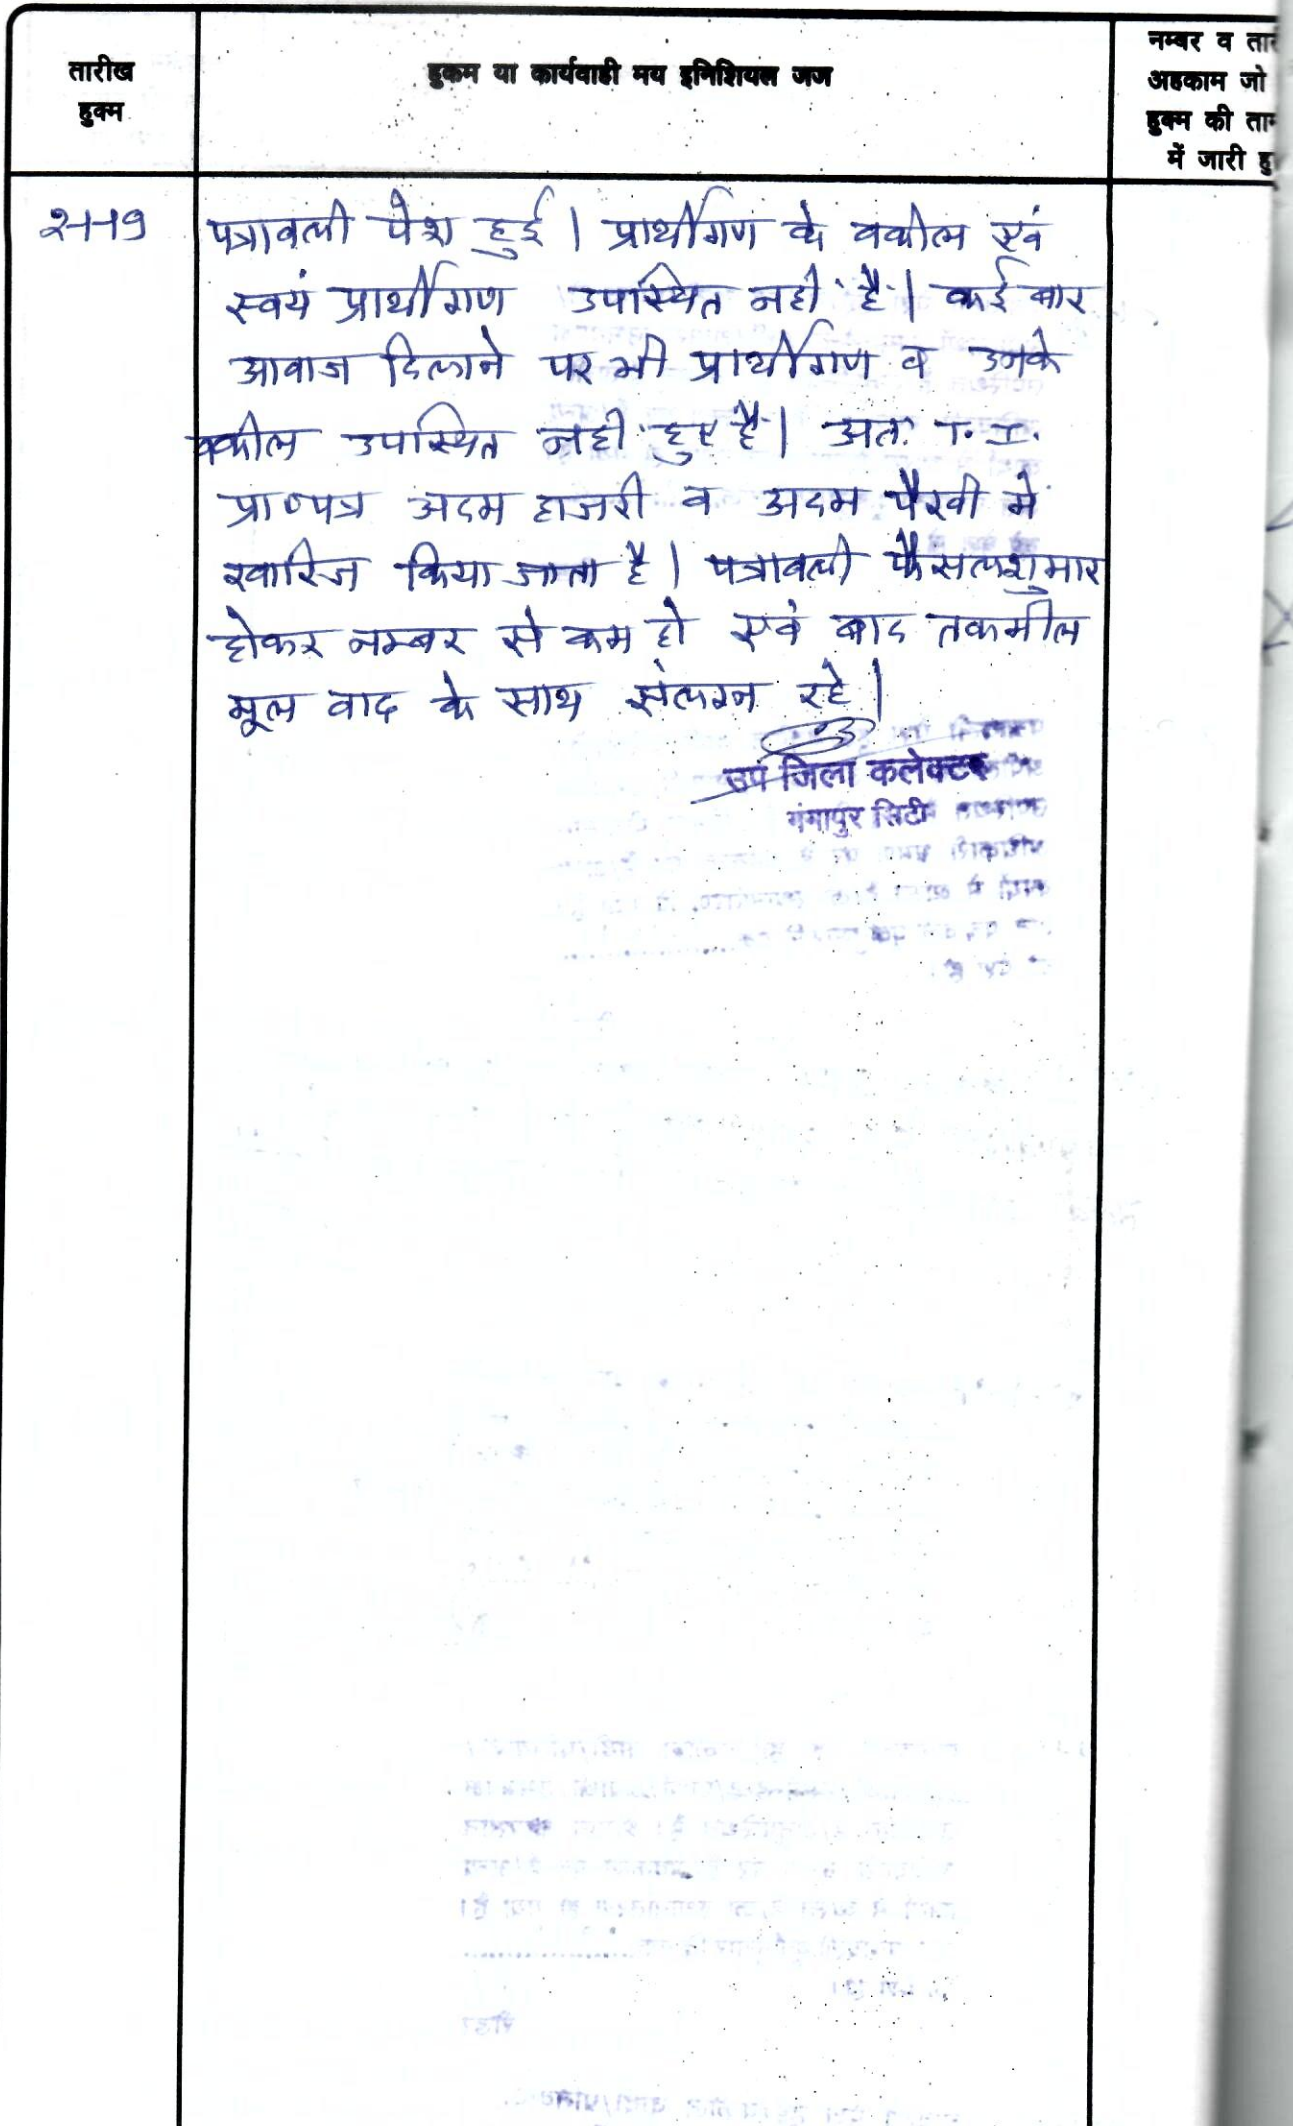 तारीख
हुक्म
हुकम या कार्यवाही मय इनिशियल जज
नम्बर व तार
अहकाम जो
हुक्म की ताम
में जारी हु
पत्रावली पेश हुई। प्रार्थीगण के वकील एवं
स्वयं प्रार्थीगण उपस्थित नहीं है। कई बार
आवाज दिलाने पर भी प्रार्थीगण व उनके
वकील उपस्थित नहीं हुए है। अतः T. I.
प्रा०पत्र अदम हाजरी व अदम पैरवी में
खारिज किया जाता है। पत्रावली फैसलशुमार
होकर नम्बर से कम हो एवं बाद तकमील
मूल वाद के साथ संलग्न रहे।
उप जिला कलेक्टर
गंगापुर सिटी